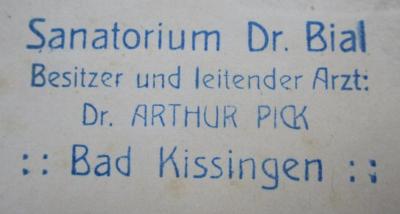 Sanatorium Dr. Bial
Besitzer und leitender Arzt:
Dr. ARTHUR PICK
:: Bad Kissingen ::